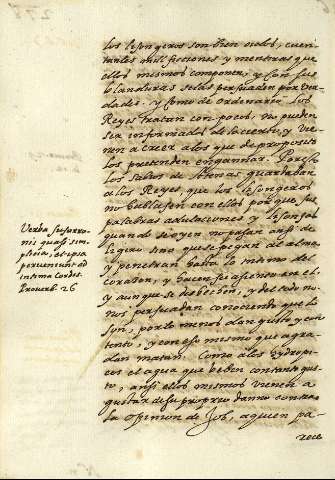 los lisongeros son bien oidos, cuen-
tanles mil ficiones y mentiras que
ellos mismos componen, y con sus
blanduras selas persuaden por ver-
dades. y como de ordinario los
Reyes tratan con pocos, no pueden
ser informados de lo cierto, y vie-
nen a creer alos que de proposito
los pretenden engannar. Por esto
los Sabios de Athenas guardaban
a los Reyes, que los lisongeros
no hablasen con ellos, por que sus
palabras adulaciones y lisonjas
quando se oyen no pasan ansi de
ligero sino que se pegan al alma
y penetran hasta lo intimo del
coraçon, y hacen su asiento en el
y aunque se deshechen, y del todo no
nos persuadan conociendo que lo
son, por lo menos dan gusto y con-
tento, y con eso mismo que agra-
dan matan. Como alos ydropi-
cos el agua que beben con tanto gus-
to, ansi ellos mismos vienen a
gustar de su proprio danno contra
la opinion de Job, aquien pa-
rece
Verba susurro-
nis quasi sim-
plicia, et ipsa
perveniunt ad
intima cordis.
Proverb. 26